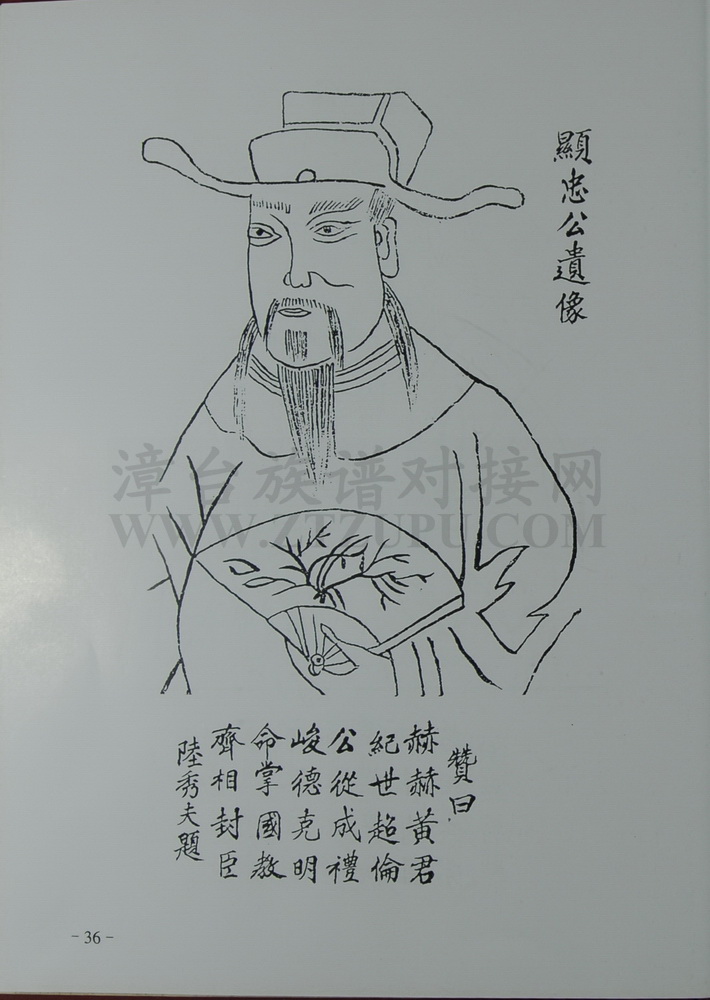 顯忠公遺像
漳台族谱对接网
WWW.ZTZUPU.COM
贊曰
赫赫黃君
紀世超倫
公從成禮
峻德克明
命掌國教
齊相封臣
陸秀夫題
- 36 -